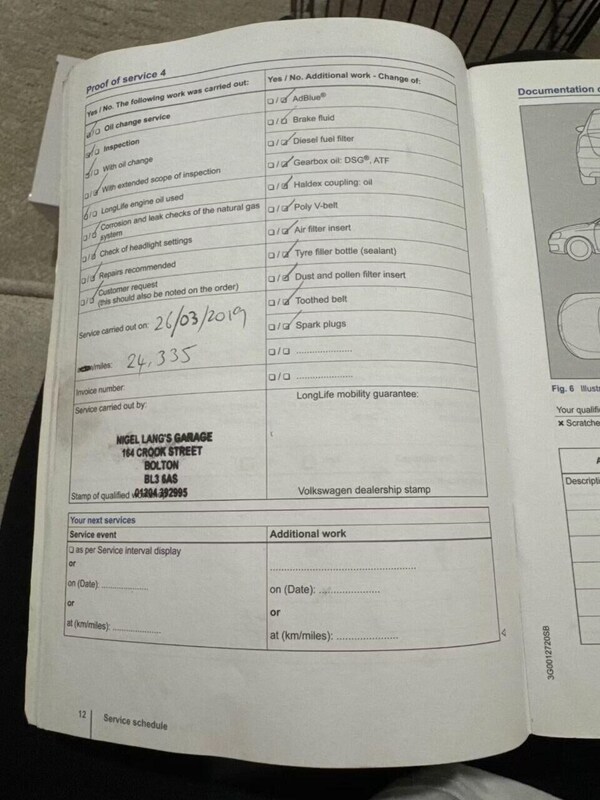 Proof of service 4
Yes / No. The following work was carried out:
❑/❑ Oil change service
❑/❑ Inspection
❑/❑ With oil change
❑/❑ With extended scope of inspection
❑/❑ LongLife engine oil used
❑/❑ Corrosion and leak checks of the natural gas
system
❑/❑ Check of headlight settings
❑/❑ Repairs recommended
❑/❑ Customer request
(this should also be noted on the order)
Service carried out on: 26/03/2019
/miles: 24,335
Invoice number:
Service carried out by:
NIGEL LANG'S GARAGE
164 CROOK STREET
BOLTON
BL3 6AS
01204 392995
Stamp of qualified
Yes / No. Additional work - Change of:
❑/❑ AdBlue®
❑/❑ Brake fluid
❑/❑ Diesel fuel filter
❑/❑ Gearbox oil: DSG®, ATF
❑/❑ Haldex coupling: oil
❑/❑ Poly V-belt
❑/❑ Air filter insert
❑/❑ Tyre filler bottle (sealant)
❑/❑ Dust and pollen filter insert
❑/❑ Toothed belt
❑/❑ Spark plugs
❑/❑ ....................
❑/❑ ....................
LongLife mobility guarantee:
Volkswagen dealership stamp
Your next services
Service event
❑ as per Service interval display
or
on (Date): ................
or
at (km/miles): ................
Additional work
................................................
on (Date): ....................
or
at (km/miles): ....................
12 Service schedule
Documentation
Fig. 6 Illustr
Your qualifi
× Scratche
A
Descripti
3G0012720SB